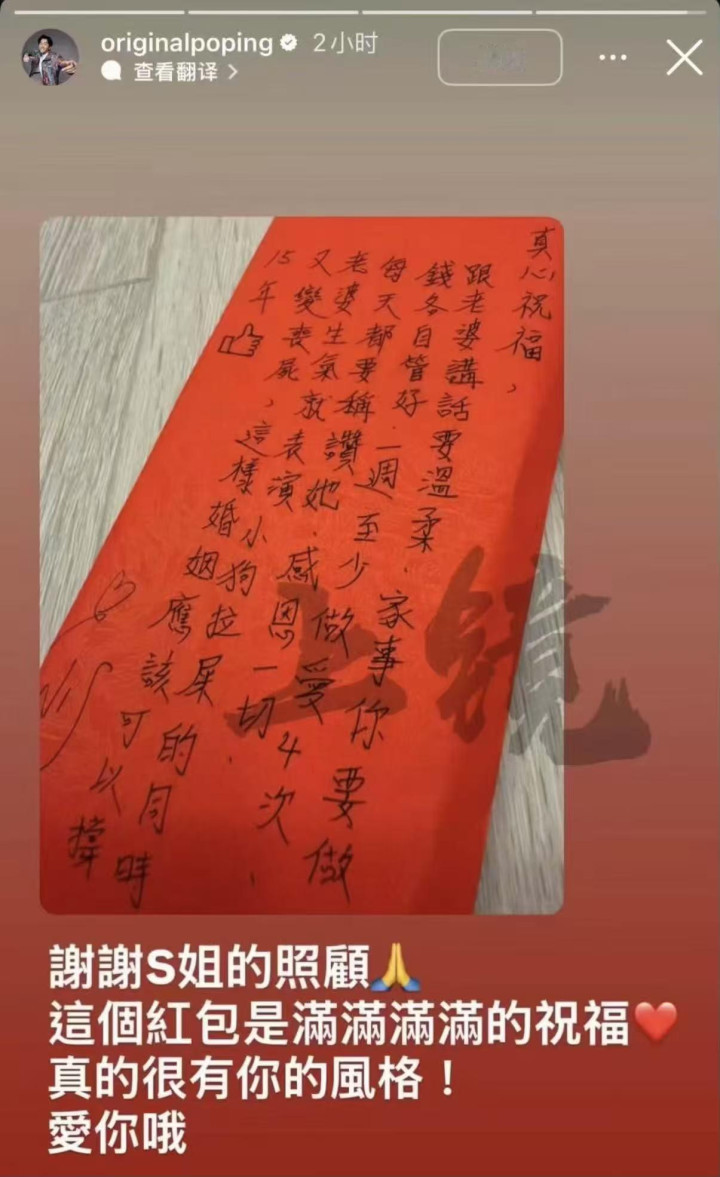 originalpoping 2小时
查看翻译
真心祝福，
跟老婆講話要溫柔、家事你要做
錢各自管好、一週至少做愛4次、
每天都要稱讚她、感恩一切、
老婆生氣就表演小狗拉屎的同時
又變喪屍，這樣婚姻應該可以撐
15年
上镜
謝謝S姐的照顧🙏
這個紅包是滿滿滿滿的祝福❤️
真的很有你的風格！
愛你哦